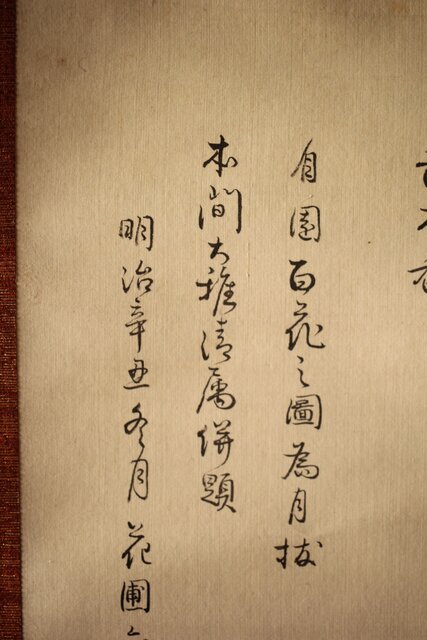 自園百花之圖為月
本間大雅清属併題
明治辛丑冬月花圃